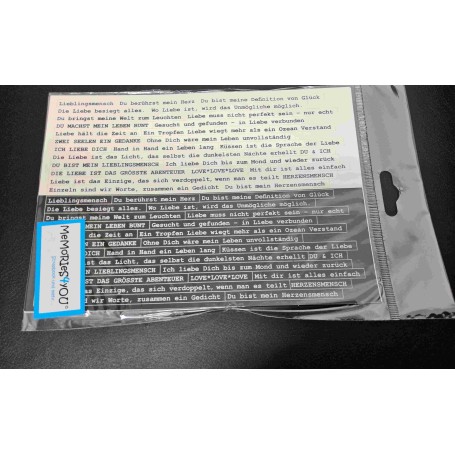 Lieblingsmensch Du berührst mein Herz Du bist meine Definition von Glück
Die Liebe besiegt alles. Wo Liebe ist, wird das Unmögliche möglich.
Du bringst meine Welt zum Leuchten Liebe muss nicht perfekt sein - nur echt
DU MACHST MEIN LEBEN BUNT Gesucht und gefunden - in Liebe verbunden
Liebe hält die Zeit an Ein Tropfen Liebe wiegt mehr als ein Ozean Verstand
ZWEI SEELEN EIN GEDANKE Ohne Dich wäre mein Leben unvollständig
ICH LIEBE DICH Hand in Hand ein Leben lang Küssen ist die Sprache der Liebe
Die Liebe ist das Licht, das selbst die dunkelsten Nächte erhellt DU & ICH
DU BIST MEIN LIEBLINGSMENSCH Ich liebe Dich bis zum Mond und wieder zurück
DIE LIEBE IST DAS GRÖSSTE ABENTEUER LOVE*LOVE*LOVE Mit dir ist alles einfach
Liebe ist das Einzige, das sich verdoppelt, wenn man es teilt HERZENSMENSCH
Einzeln sind wir Worte, zusammen ein Gedicht Du bist mein Herzensmensch
Lieblingsmensch Du berührst mein Herz Du bist meine Definition von Glück
Die Liebe besiegt alles. Wo Liebe ist, wird das Unmögliche möglich.
Du bringst meine Welt zum Leuchten Liebe muss nicht perfekt sein - nur echt
MEIN LEBEN BUNT Gesucht und gefunden - in Liebe verbunden
die Zeit an Ein Tropfen Liebe wiegt mehr als ein Ozean Verstand
EN EIN GEDANKE Ohne Dich wäre mein Leben unvollständig
DICH Hand in Hand ein Leben lang Küssen ist die Sprache der Liebe
st das Licht, das selbst die dunkelsten Nächte erhellt DU & ICH
N LIEBLINGSMENSCH Ich liebe Dich bis zum Mond und wieder zurück
ST DAS GRÖSSTE ABENTEUER LOVE*LOVE*LOVE Mit dir ist alles einfach
das Einzige, das sich verdoppelt, wenn man es teilt HERZENSMENSCH
nd wir Worte, zusammen ein Gedicht Du bist mein Herzensmensch
Memories4you